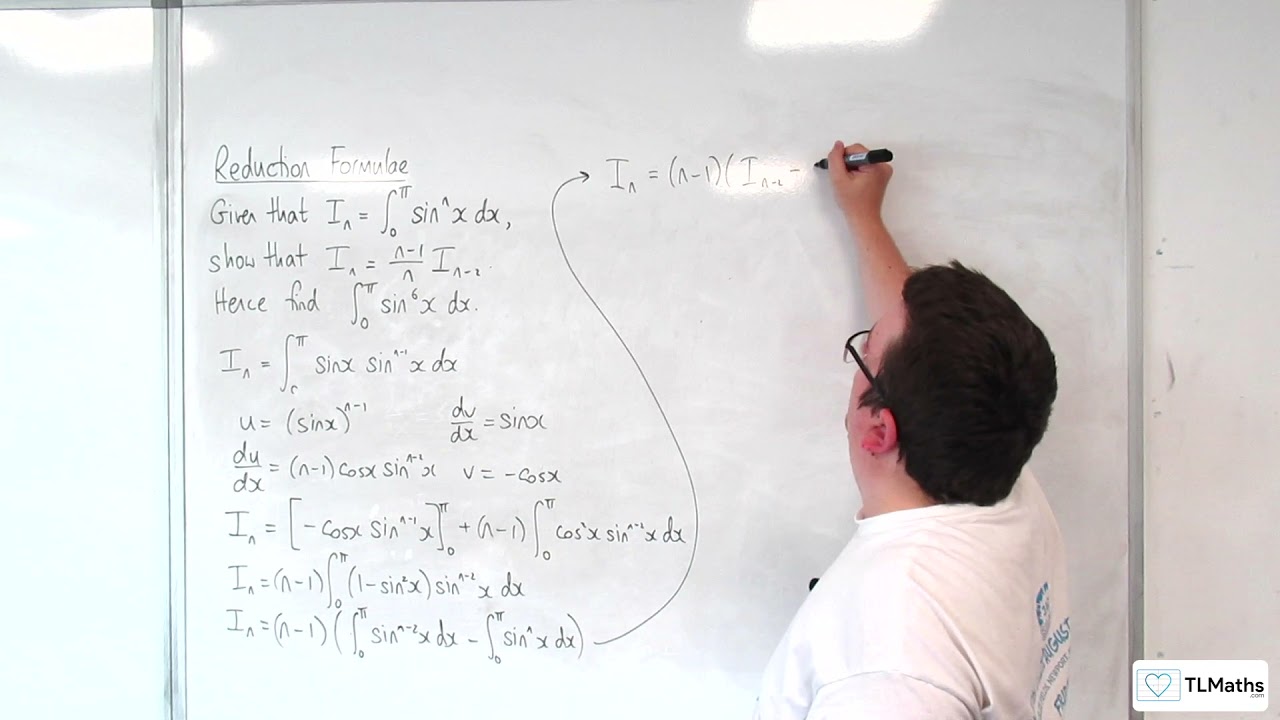 Reduction Formulae
Given that Iₙ = ∫₀^π sinⁿx dx,
show that Iₙ = (n-1)/n Iₙ₋₂.
Hence find ∫₀^π sin⁶x dx.
Iₙ = ∫₀^π sinx sinⁿ⁻¹x dx
u = (sinx)ⁿ⁻¹ dv/dx = sinx
du/dx = (n-1)cosx sinⁿ⁻²x v = -cosx
Iₙ = [-cosx sinⁿ⁻¹x]₀^π + (n-1)∫₀^π cos²x sinⁿ⁻²x dx
Iₙ = (n-1)∫₀^π (1-sin²x) sinⁿ⁻²x dx
Iₙ = (n-1)(∫₀^π sinⁿ⁻²x dx - ∫₀^π sinⁿx dx)
Iₙ = (n-1)(Iₙ₋₂ -
TLMaths
.com